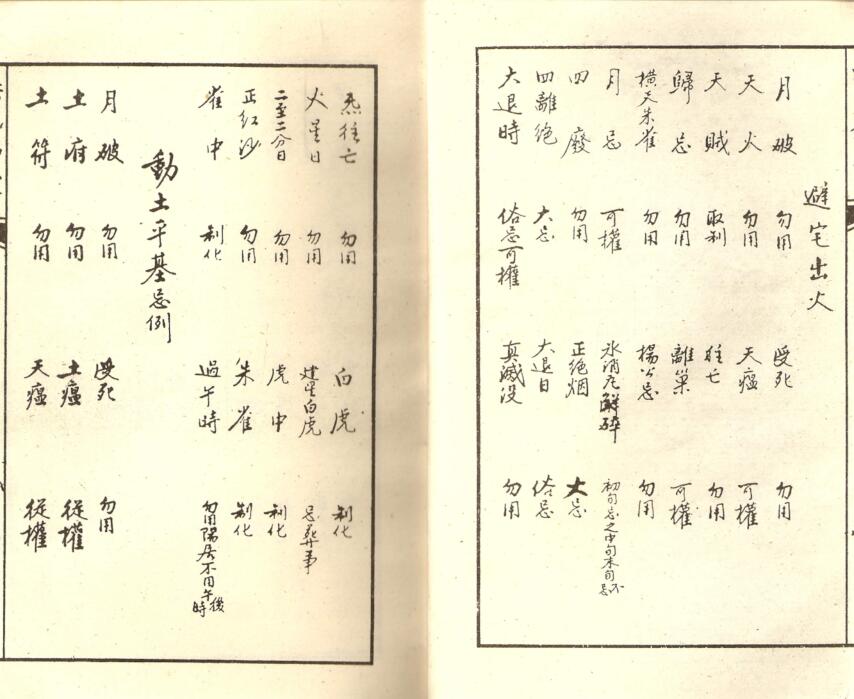 避宅出火
月破 勿用 受死 勿用
天火 勿用 天瘟 可權
天賊 取制 往亡 勿用
歸忌 勿用 離巢 可權
橫天朱雀 勿用 楊公忌 勿用
月忌 可權 冰消瓦解碎 初旬忌之中旬末旬不忌
四廢 勿用 正絕烟 大忌
四離絕 大忌 大退日 俗忌
大退時 俗忌可權 真滅沒 勿用
炁往亡 勿用 白虎 制化
火星日 勿用 建星白虎 忌葬事
二至二分日 勿用 虎中 制化
正紅沙 勿用 朱雀 制化
雀中 制化 過午時 勿用陽居不用午後時
動土平基忌例
月破 勿用 受死 勿用
土府 勿用 土瘟 從權
土符 勿用 天瘟 從權